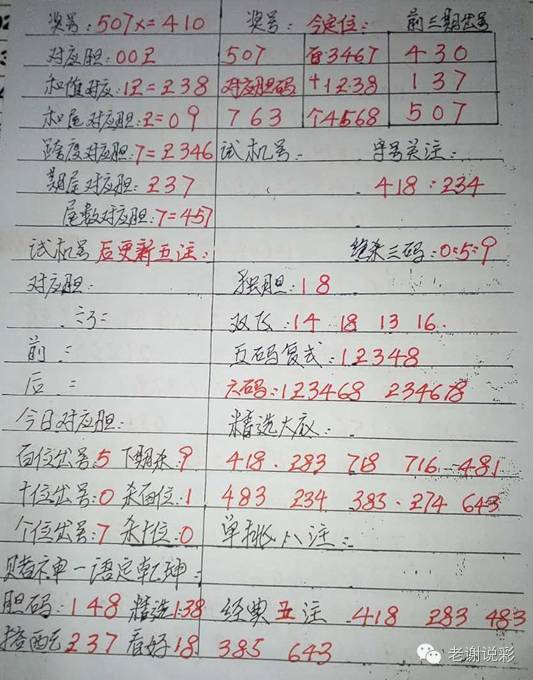 奖号:507x=410 奖号: 今定位: 前三期出号
对应胆:00Z 507 百3467 430
和值对应:12=238 对应胆码 十1238 137
和尾对应胆:2=09 763 个4568 507
跨度对应胆:7=2346 试机号: 字号关注:
期尾对应胆:237 418:234
尾数对应胆:7=457
试机号后更新五注: 绝杀三码:0:5:9
对应胆: 独胆:18
双飞:14 18 13 16.
前: 五码复式:12348
后: 六码:123468 234678
今日对应胆: 精选大底:
百位出号:5 下期杀:9 418. 283 718 716 481
十位出号:0 杀百位:1 483 234 383. 274 643
个位出号:7 杀十位:0 单挑八注:
赌神一语定乾坤:
胆码:148 精选138 经典五注 418 283 483
搭配237 看好18 385 643
老谢说彩